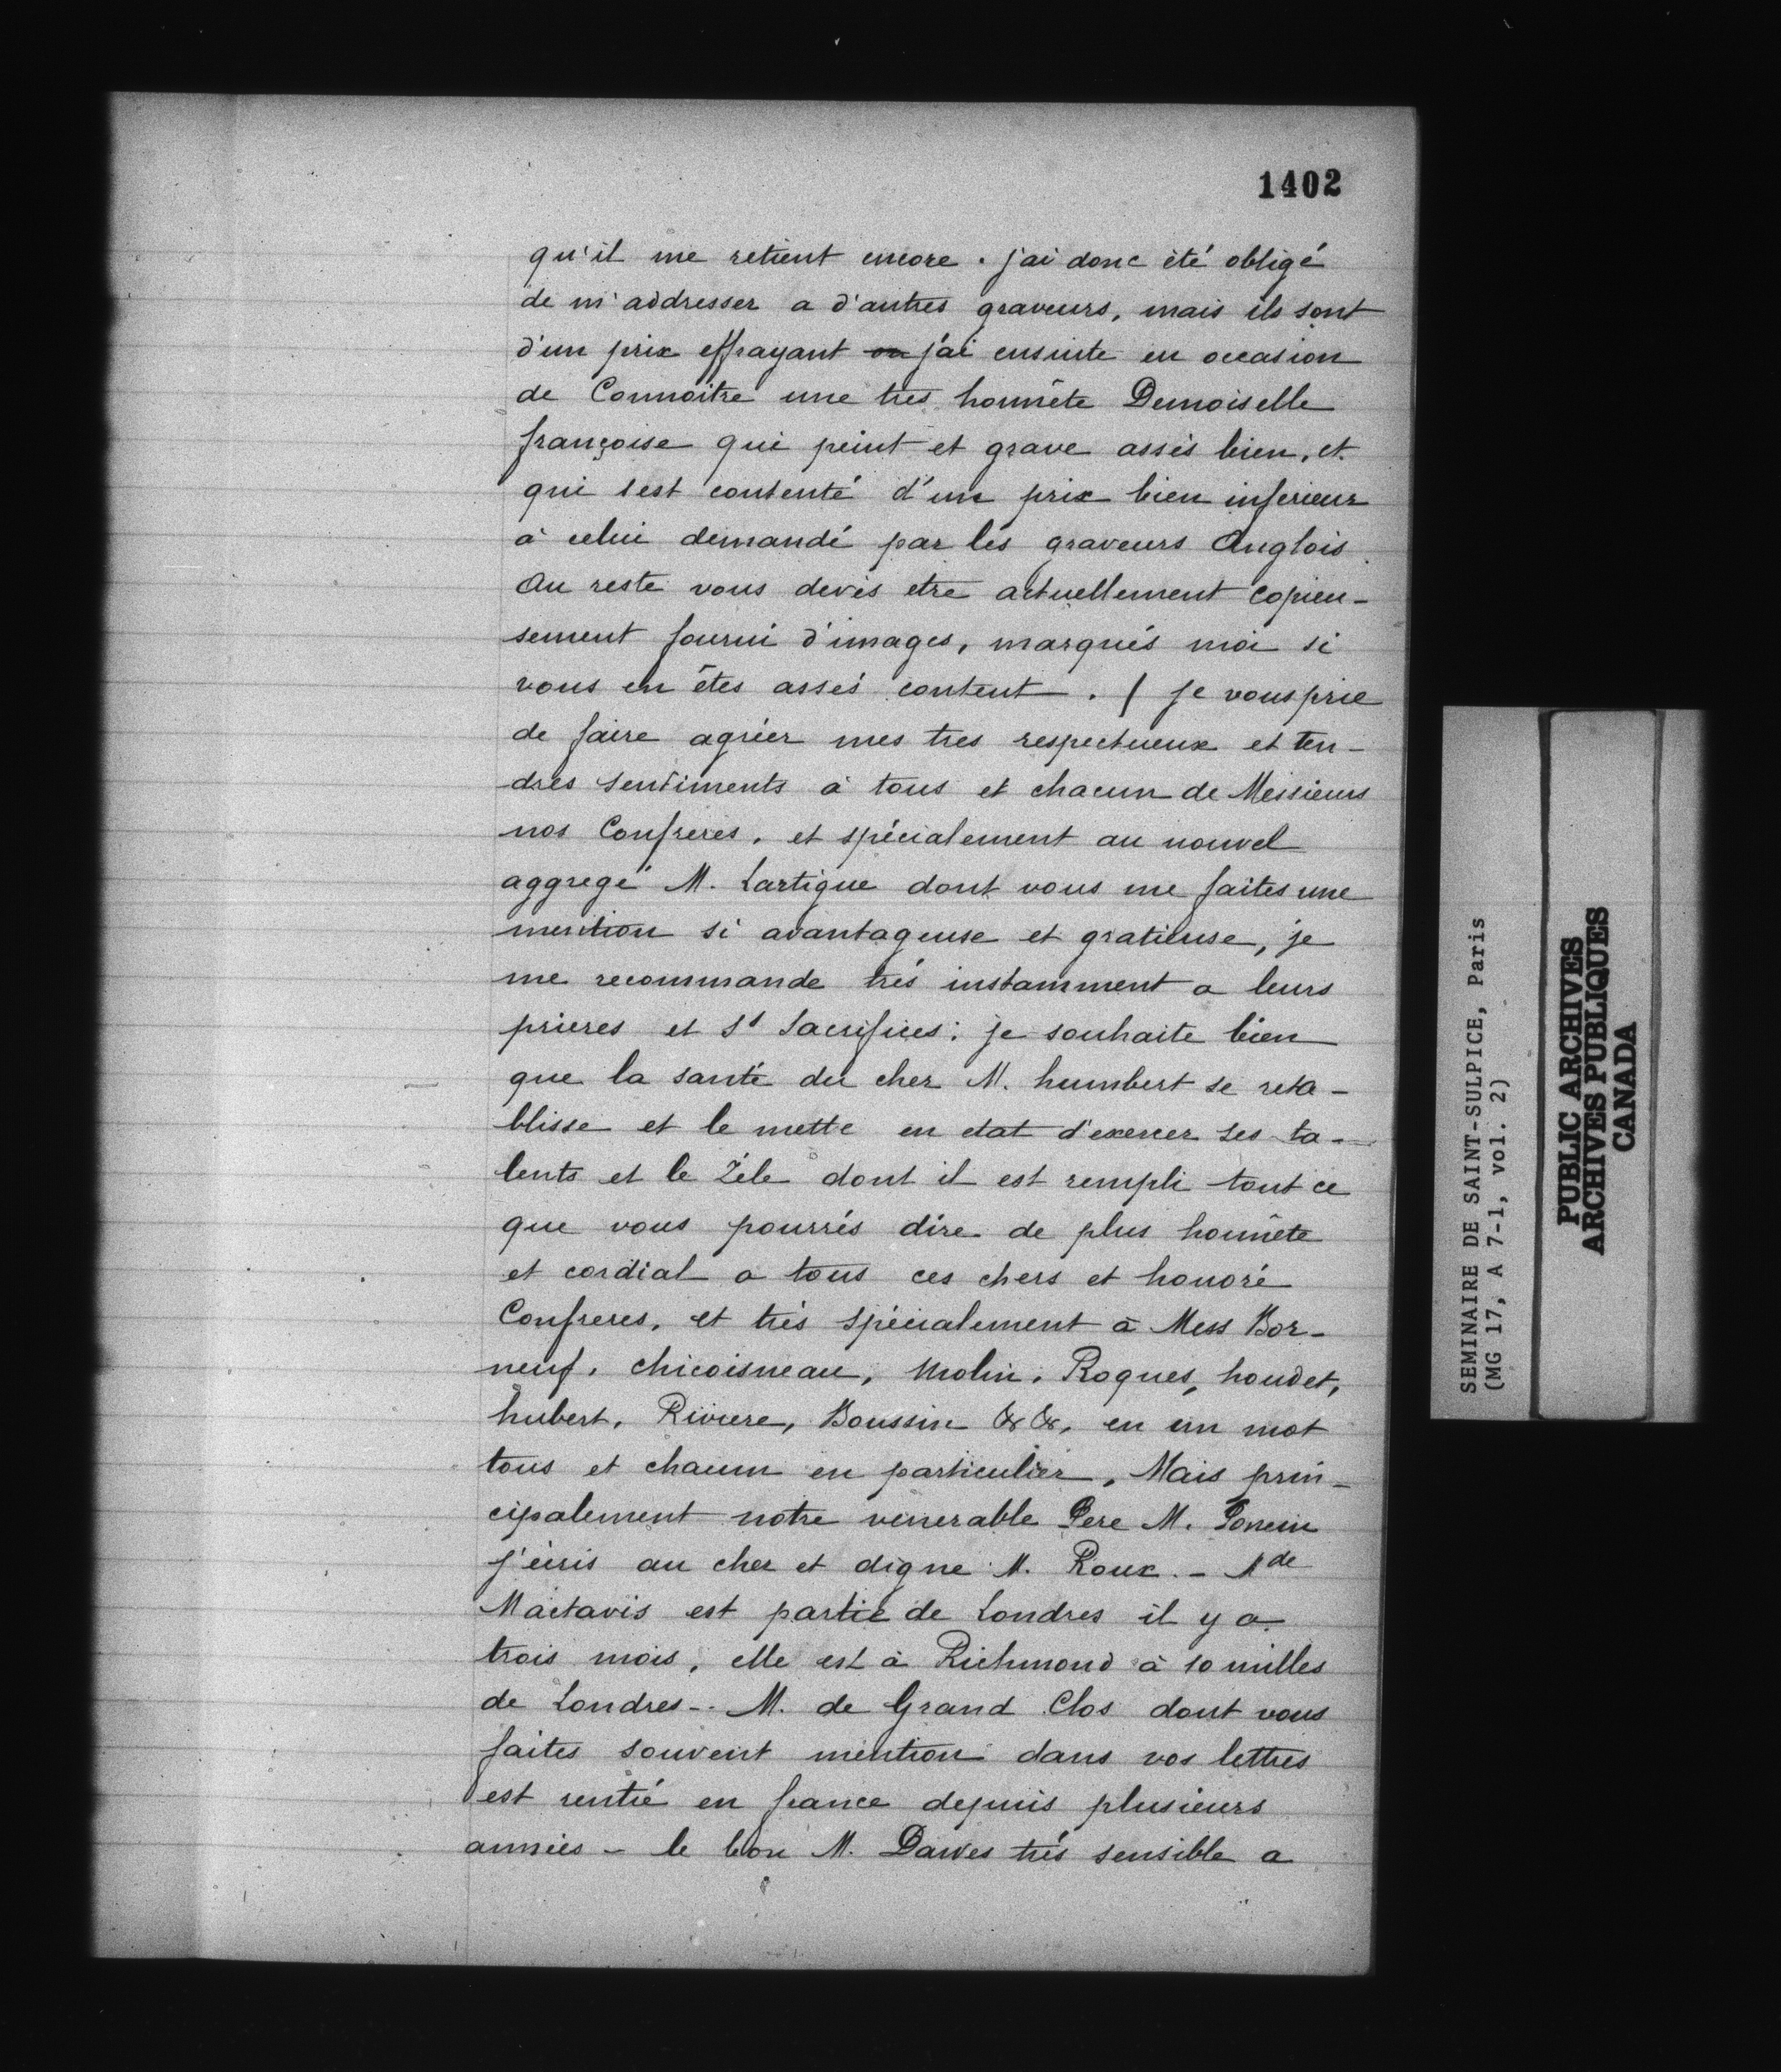 1402
qu'il me retient encore. j'ai donc été obligé
de m'addresser a d'autres graveurs, mais ils sont
d'un prix effrayant j'ai ensuite eu occasion
de Connoitre une tres honnête Demoiselle
françoise qui peint et grave assés bien, et
qui s'est contenté d'un prix bien inferieur
à celui demandé par les graveurs Anglois.
Au reste vous devés etre actuellement copieu-
sement fourni d'images, marqués moi si
vous en êtes assés content. / je vous prie
de faire agréer mes tres respectueux et ten-
dres sentiments à tous et chacun de Messieurs
nos Confreres, et spécialement au nouvel
aggregé M. Lartigue dont vous me faites une
mention si avantageuse et gratieuse, je
me recommande trés instamment a leurs
prieres et Sts Sacrifices: je souhaite bien
que la santé du cher M. humbert se reta-
blisse et le mette en etat d'exercer ses ta-
lents et le Zéle dont il est rempli tout ce
que vous pourrés dire de plus honnête
et cordial a tous ces chers et honoré
Confreres, et trés spécialement à Mess Bor-
neuf, chicoisneau, Molin, Roques, houdet,
hubert, Riviere, Boussin &c &c, en un mot
tous et chacun en particulier, Mais prin-
cipalement notre venerable Pere M. Poncin
j'écris au cher et digne M. Roux. - Mde
Mactavis est partie de Londres il y a
trois mois, elle est à Richmond à 10 milles
de Londres-. M. de Grand Clos dont vous
faites souvent mention dans vos lettres
est rentré en france depuis plusieurs
années - le bon M. Dawes trés sensible a
SEMINAIRE DE SAINT-SULPICE, Paris
(MG 17, A 7-1, vol. 2)
PUBLIC ARCHIVES
ARCHIVES PUBLIQUES
CANADA